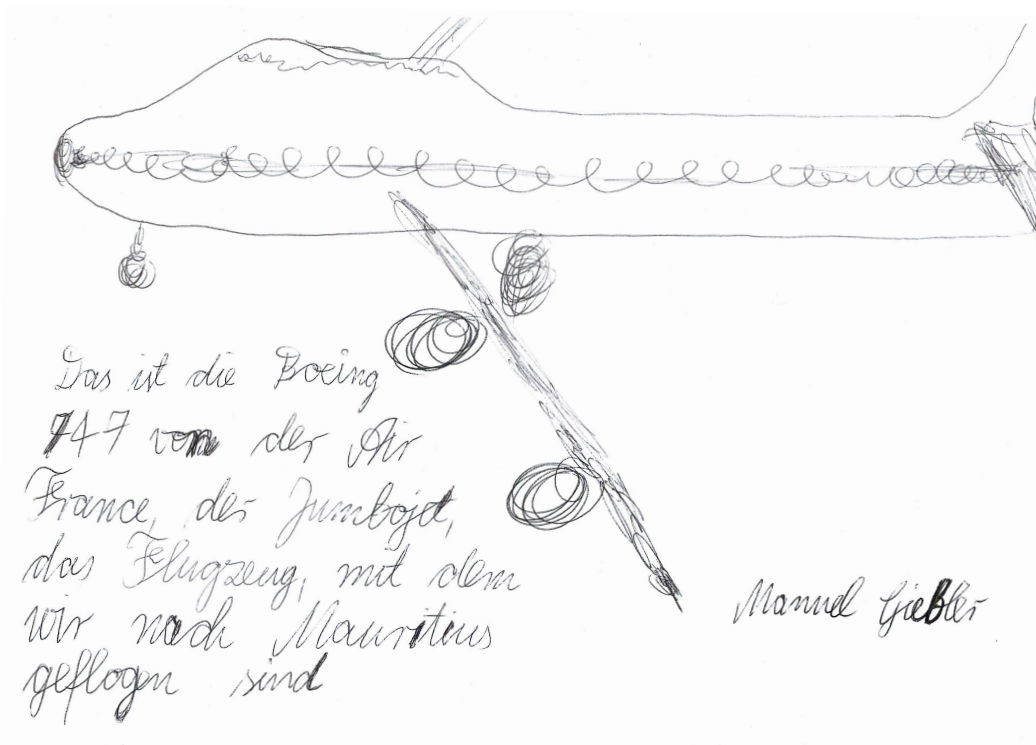 Das ist die Boeing
747 von der Air
France, der Jumbojet,
das Flugzeug, mit dem
wir nach Mauritius
geflogen sind
Manuel Gießler